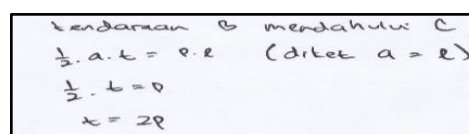 kendaraan B mendahului C
½ . a . t = p . l (diket a = l)
½ . t = p
t = 2p